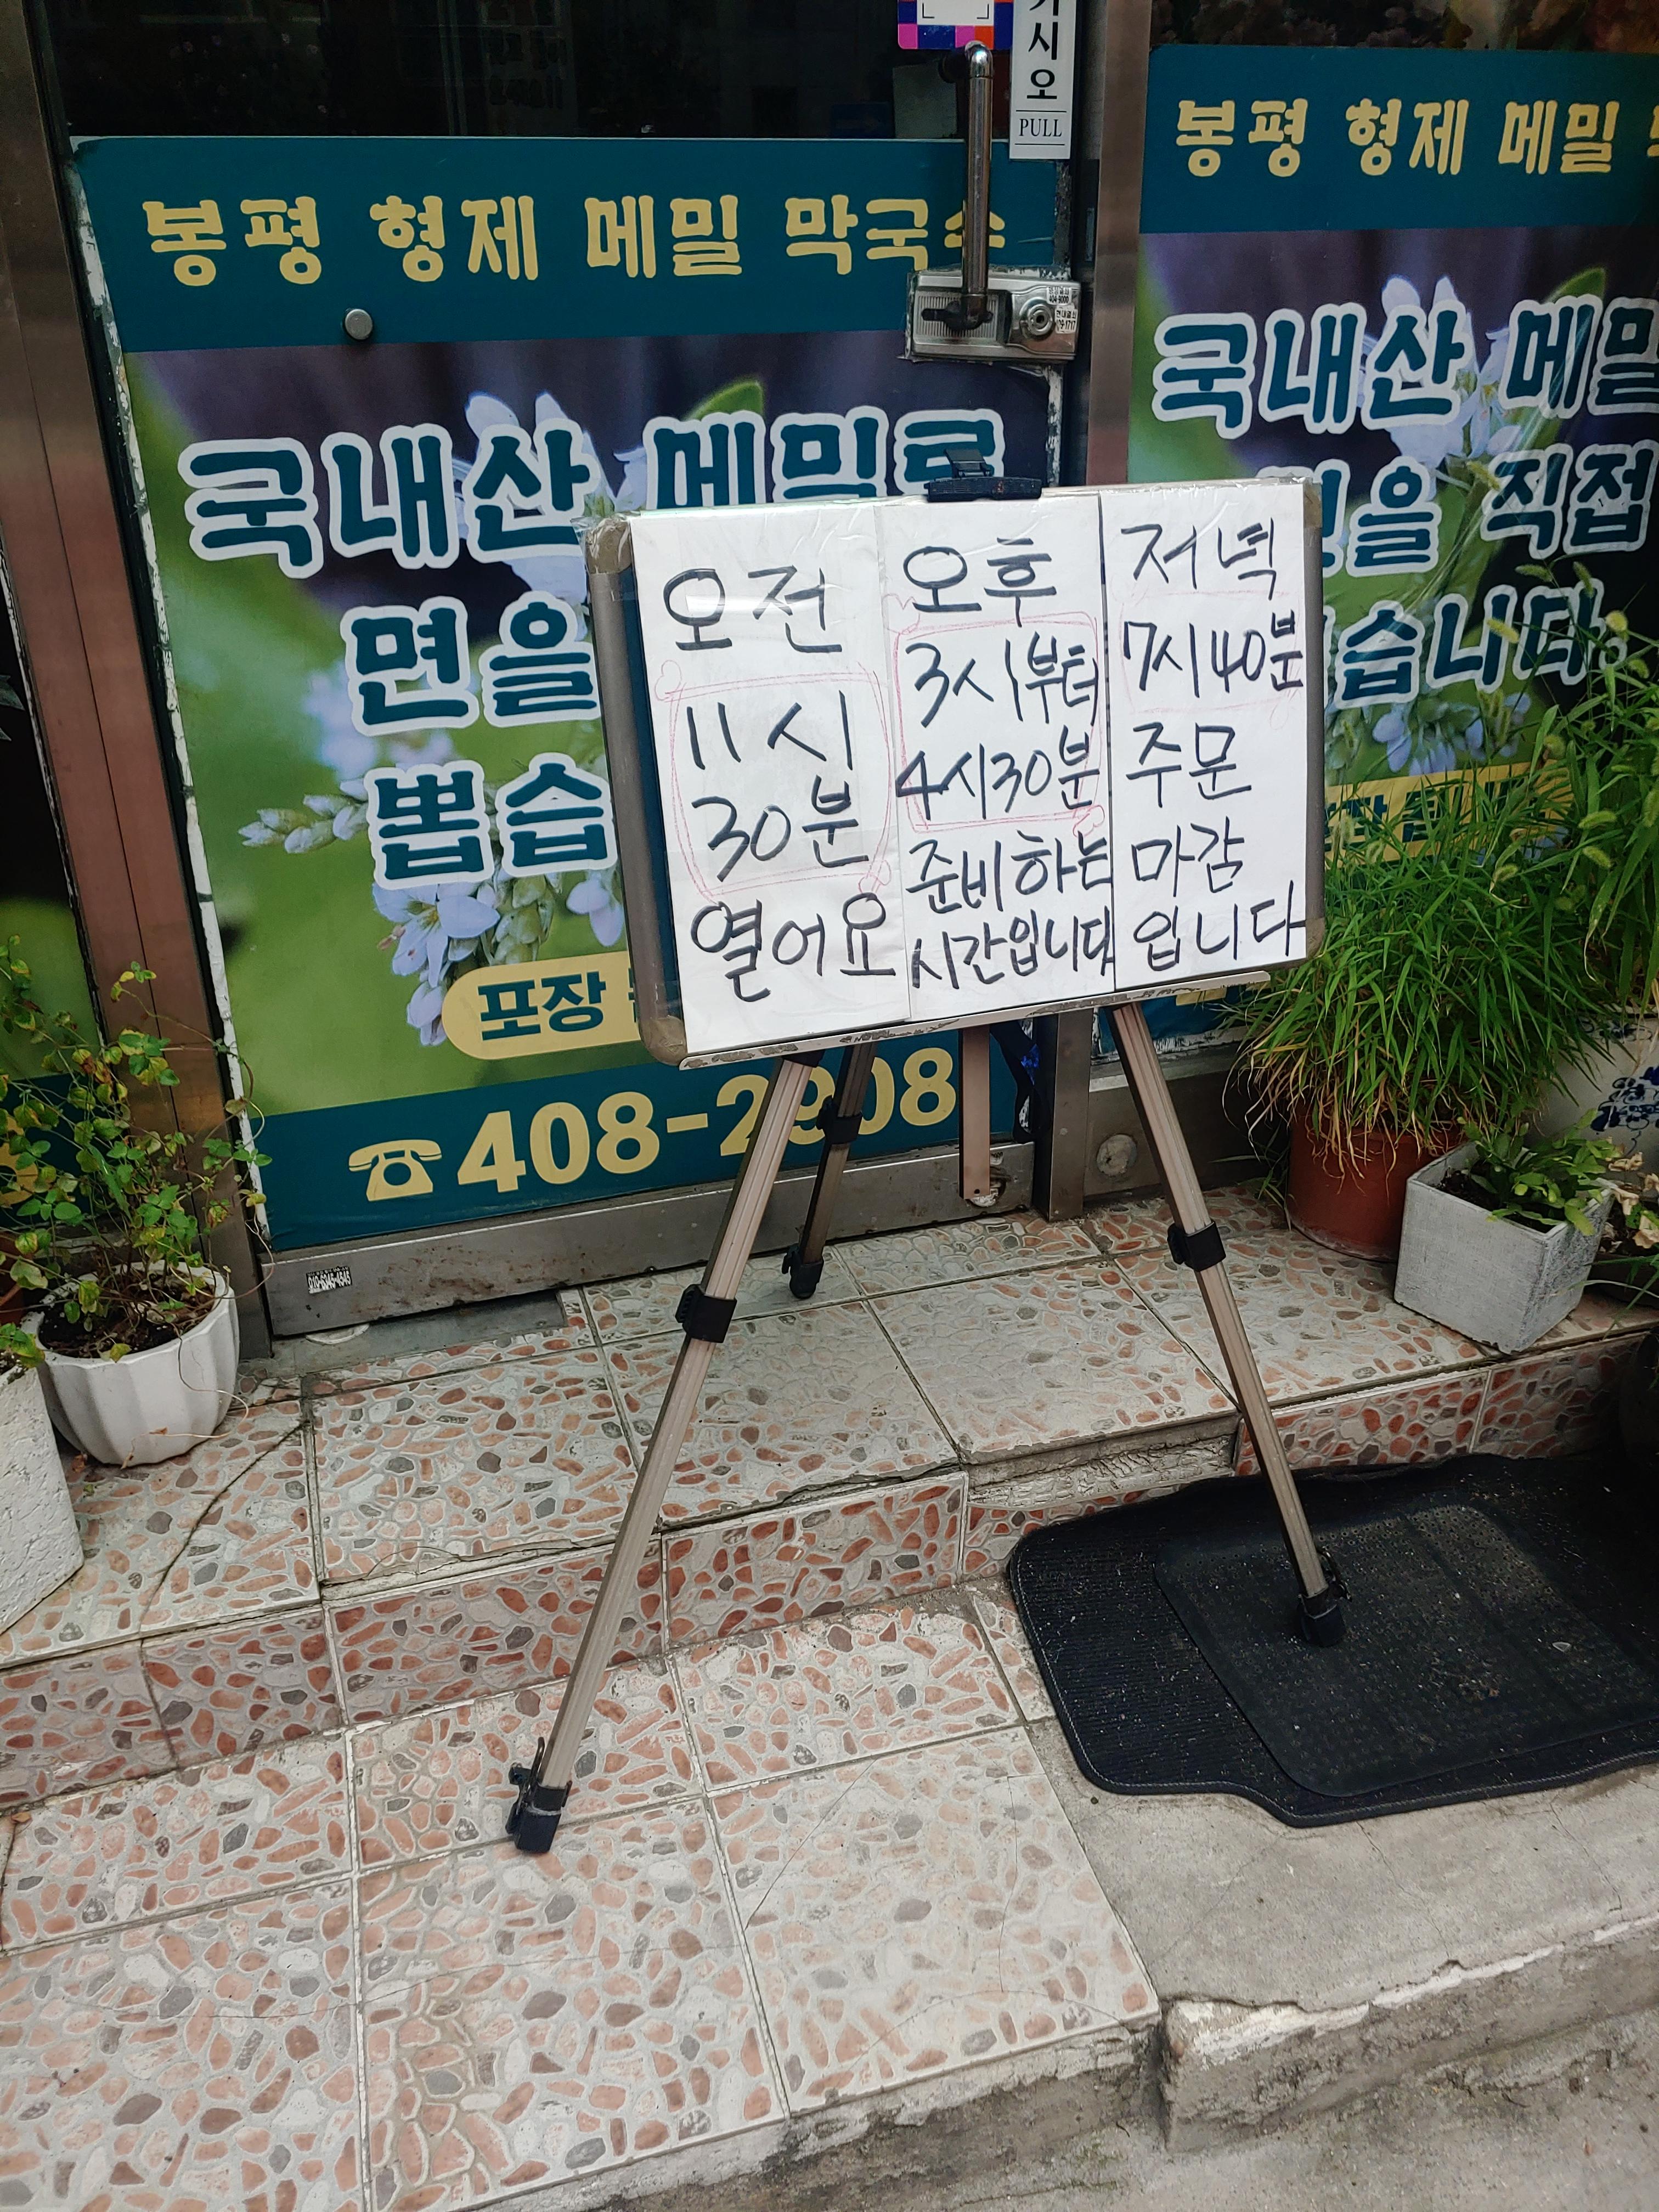 기시오
PULL
봉평 형제 메밀 막국수
국내산 메밀로
면을
뽑습
포장
☎408-2908
봉평 형제 메밀
국내산 메밀
을 직접
습니다.
오전
11시
30분
열어요
오후
3시부터
4시30분
준비하는
시간입니다
저녁
7시40분
주문
마감
입니다